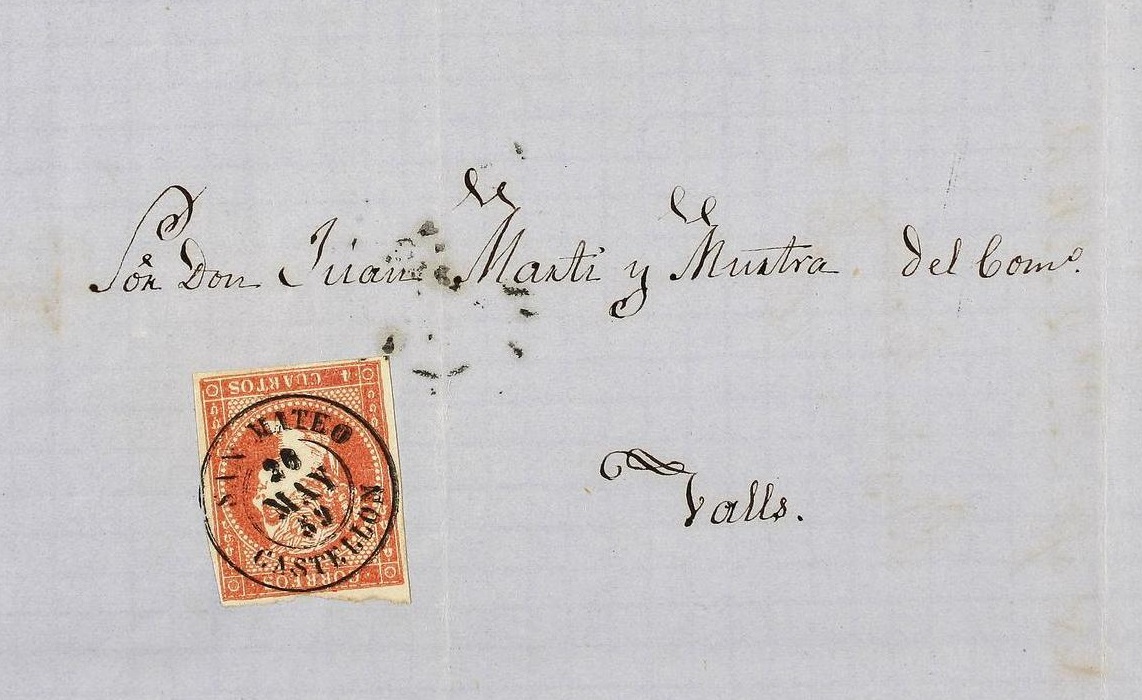 Sõr Don Juan Marti y Muntra del Comº.
4 CUARTOS
SAN MATEO
20
MAY
59
CASTELLON
CORREOS
Valls.